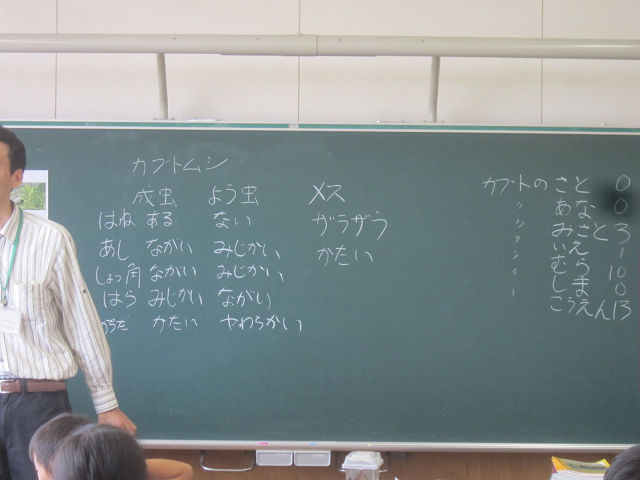 カブトムシ
成虫 よう虫 メス
はね ある ない ザラザラ
あし ながい みじかい かたい
しょっ角 ながい みじかい
はら みじかい ながい
かたい やわらかい
カブトのさと 0
〃 あな 0
〃 みさと 3
〃 いえ 1
〃 むら 10
〃 しま 0
こうえん 13